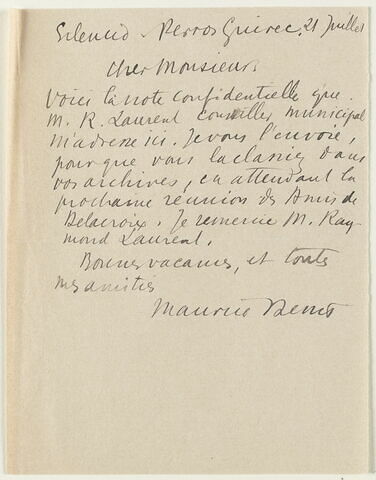 Silencio - Perros Guirec, 21 Juillet
Cher Monsieur.
Voici la note confidentielle que
M. R. Laurent conseiller municipal
m'adresse ici. Je vous l'envoie,
pour que vous la classiez dans
vos archives, en attendant la
prochaine réunion des Amis de
Delacroix. Je remercie M. Ray-
mond Laurent.
Bonnes vacances, et toutes
mes amitiés
Maurice Denis